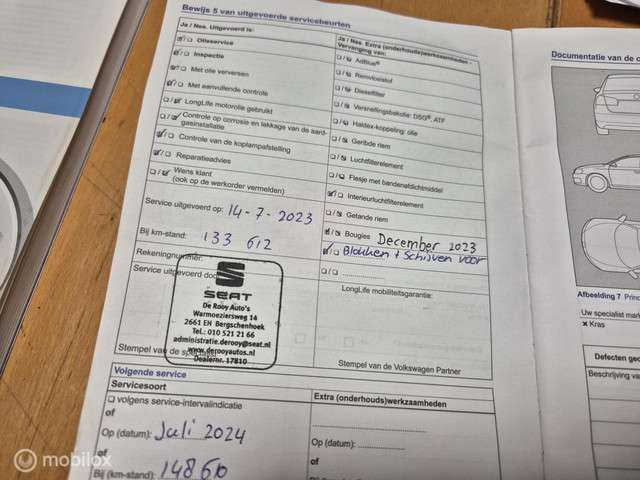 Bewijs 5 van uitgevoerde servicebeurten
Ja / Nee Uitgevoerd is:
Olieservice
Inspectie
Met olie verversen
Met aanvullende controle
LongLife motorolie gebruikt
Controle op corrosie en lekkage van de aard-
gasinstallatie
Controle van de koplampafstelling
Reparatieadvies
Wens klant
(ook op de werkorder vermelden)
Service uitgevoerd op: 14-7-2023
Bij km-stand: 133 612
Rekeningnummer:
Service uitgevoerd door
SEAT
De Rooy Auto's
Warmoeziersweg 14
2661 EH Bergschenhoek
Tel.: 010 521 21 66
administratie.derooy@seat.nl
www.derooyautos.nl
Dealernr. 17810
Stempel van de
Ja / Nee Extra (onderhouds)werkzaamheden -
Vervanging van:
AdBlue®
Remvloeistof
Dieselfilter
Versnellingsbakolie: DSG®, ATF
Haldex-koppeling: olie
Geribde riem
Luchtfilterelement
Flesje met bandenafdichtmiddel
Interieurluchtfilterelement
Getande riem
Bougies December 2023
Blokken + Schijven voor
LongLife mobiliteitsgarantie:
Stempel van de Volkswagen Partner
Volgende service
Servicesoort
volgens service-intervalindicatie
of
Op (datum): Juli 2024
of
Bij (km-stand): 148610
Extra (onderhouds)werkzaamheden
Op (datum):
of
Documentatie van de c
Afbeelding 7 Prin
Uw specialist mark
× Kras
Defecten geco
Beschrijving va
mobilox